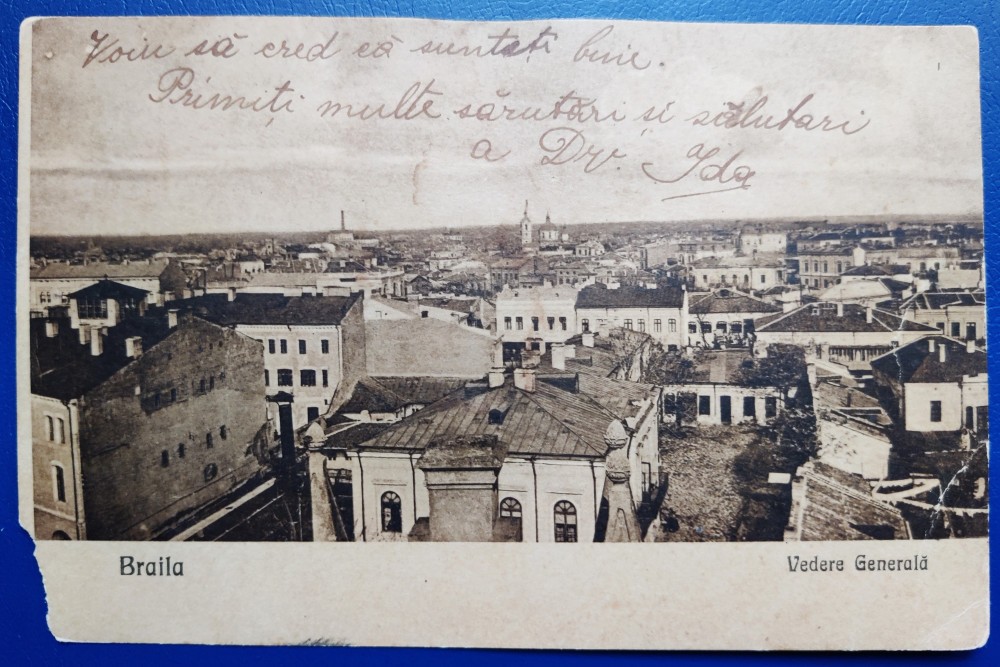 Voiu să cred că suntați bine.
Primiți multe sărutări și sălutari
a Dv. Ida
Braila
Vedere Generală